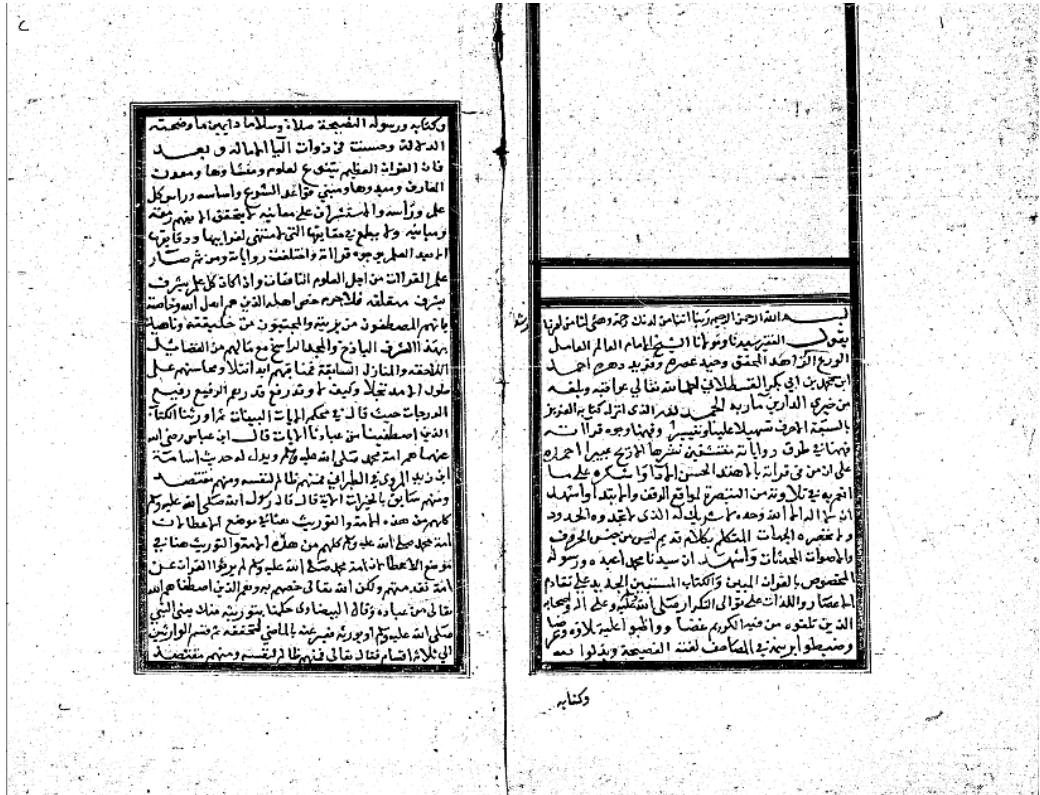 بسم الله الرحمن الرحيم ربنا آتنا من لدنك رحمة وهيئ لنا من أمرنا
رشدا
يقول الفقير سيدنا ومولانا الشيخ الامام العالم العامل
الورع الزاهد المحقق وحيد عصره وفريد دهره احمد
ابن محمد بن ابي بكر القسطلاني لطف الله تعالى عوافيه وبلغه
من خيري الدارين مآربه الحمد لله الذي انزل كتابه العزيز
بالسبعة الاحرف تسهيلا علينا وتيسيرا وفهمنا وجوه قراآته
فهمنا في طرق رواياته منتشقين نشرها الاريج عبيرا احمده
على ان من في قراته بالهند الحسن الاداء واشكره على ما
في تلاوته من التبصرة لمواقع الوقف والابتدا واشهد
ان لا اله الا الله وحده لا شريك له الذي لا تحده الحدود
ولا تحصره الجهات المتكلم بكلام قديم ليس من جنس الحروف
والاصوات المحدثات واشهد ان سيدنا محمد اعبده ورسوله
المخصوص بالقران المبين والكتاب المستبين الجديد على تقادم
الاعصار واللذات على توالي التكرار صلى الله عليه وعلى آله واصحابه
الذين تلقوه من فيه الكريم غضا وواظبوا عليه تلاوة وعرضا
وضبطوا برسمه في المصاحف لغته الفصيحة وبذلوا لله
وكتابه
وكتابه ورسوله النصيحة صلاة وسلاما دايمين ما وضحت
الدلالة وحسنت في ذوات اليا الامالة وبعد
فان القران العظيم ينبوع العلوم ومنشاوها ومعدن
المعارف ومبدوها ومبنى قواعد الشرع واساسه وراس كل
علم ورأسه والاستشراف على معانيه لا يتحقق الا بفهم رصفه
ومبانيه ولا يطمع في حقايقها التي لا منتهى لغرايبها ودقايقها
الا بعد العلم بوجوه قراآته واختلاف رواياته ومن ثم صار
علم القراات من اجل العلوم النافعات واذا كان كل علم يشرف
بشرف متعلقه فلا جرم خص اهله الذين هم اهل الله وخاصته
بانهم المصطفون من بريته والمجتبون من خليقته وناهيك
بهذا الشرف الباذخ والمجد الراسخ مع مالهم من الفضائل
اللاحقه والمنازل السابقة فمناقبهم ابدا تتلا ومحاسنهم على
طول الامد تجلا وكيف لا وقد رفع قدرهم الرفيع رفيع
الدرجات حيث قال في محكم الايات البينات ثم اورثنا الكتاب
الذين اصطفينا من عبادنا الايات قال ابن عباس رضي الله
عنهما هم امة محمد صلى الله عليه وسلم ويدل له حديث اسامة
ابن زيد المروي في الطبراني فمنهم ظالم لنفسه ومنهم مقتصد
ومنهم سابق بالخيرات الاية قال قال رسول الله صلى الله عليه وسلم
كلهم من هذه الامة والتوريث هنا في موضع الاعطا لان
امة محمد صلى الله عليه وسلم كلهم من هذه الامة والتوريث هنا في
موضع الاعطا لان امة محمد صلى الله عليه وسلم لم يرثوا القران عن
امة تقدمتهم ولكن الله تعالى خصهم به وهم الذين اصطفاهم الله
تعالى من عباده وقال البيضاوي حكمنا بتوريثه منك يعني النبي
صلى الله عليه وسلم او نورثه فعبر عنه بالماضي لتحققه ثم قسم الوارثين
الي ثلاثة اقسام فقال تعالى فمنهم ظالم لنفسه ومنهم مقتصد